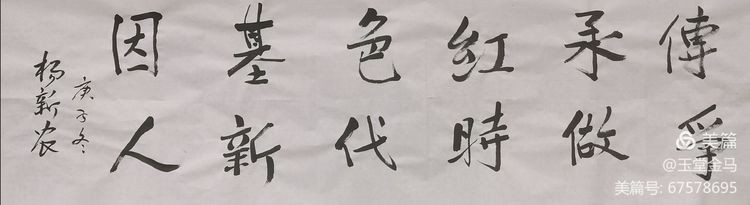 傳爭
承做
紅時
色代
基新
因人
庚子冬
楊新农
美篇
@玉堂金马
美篇号: 67578695